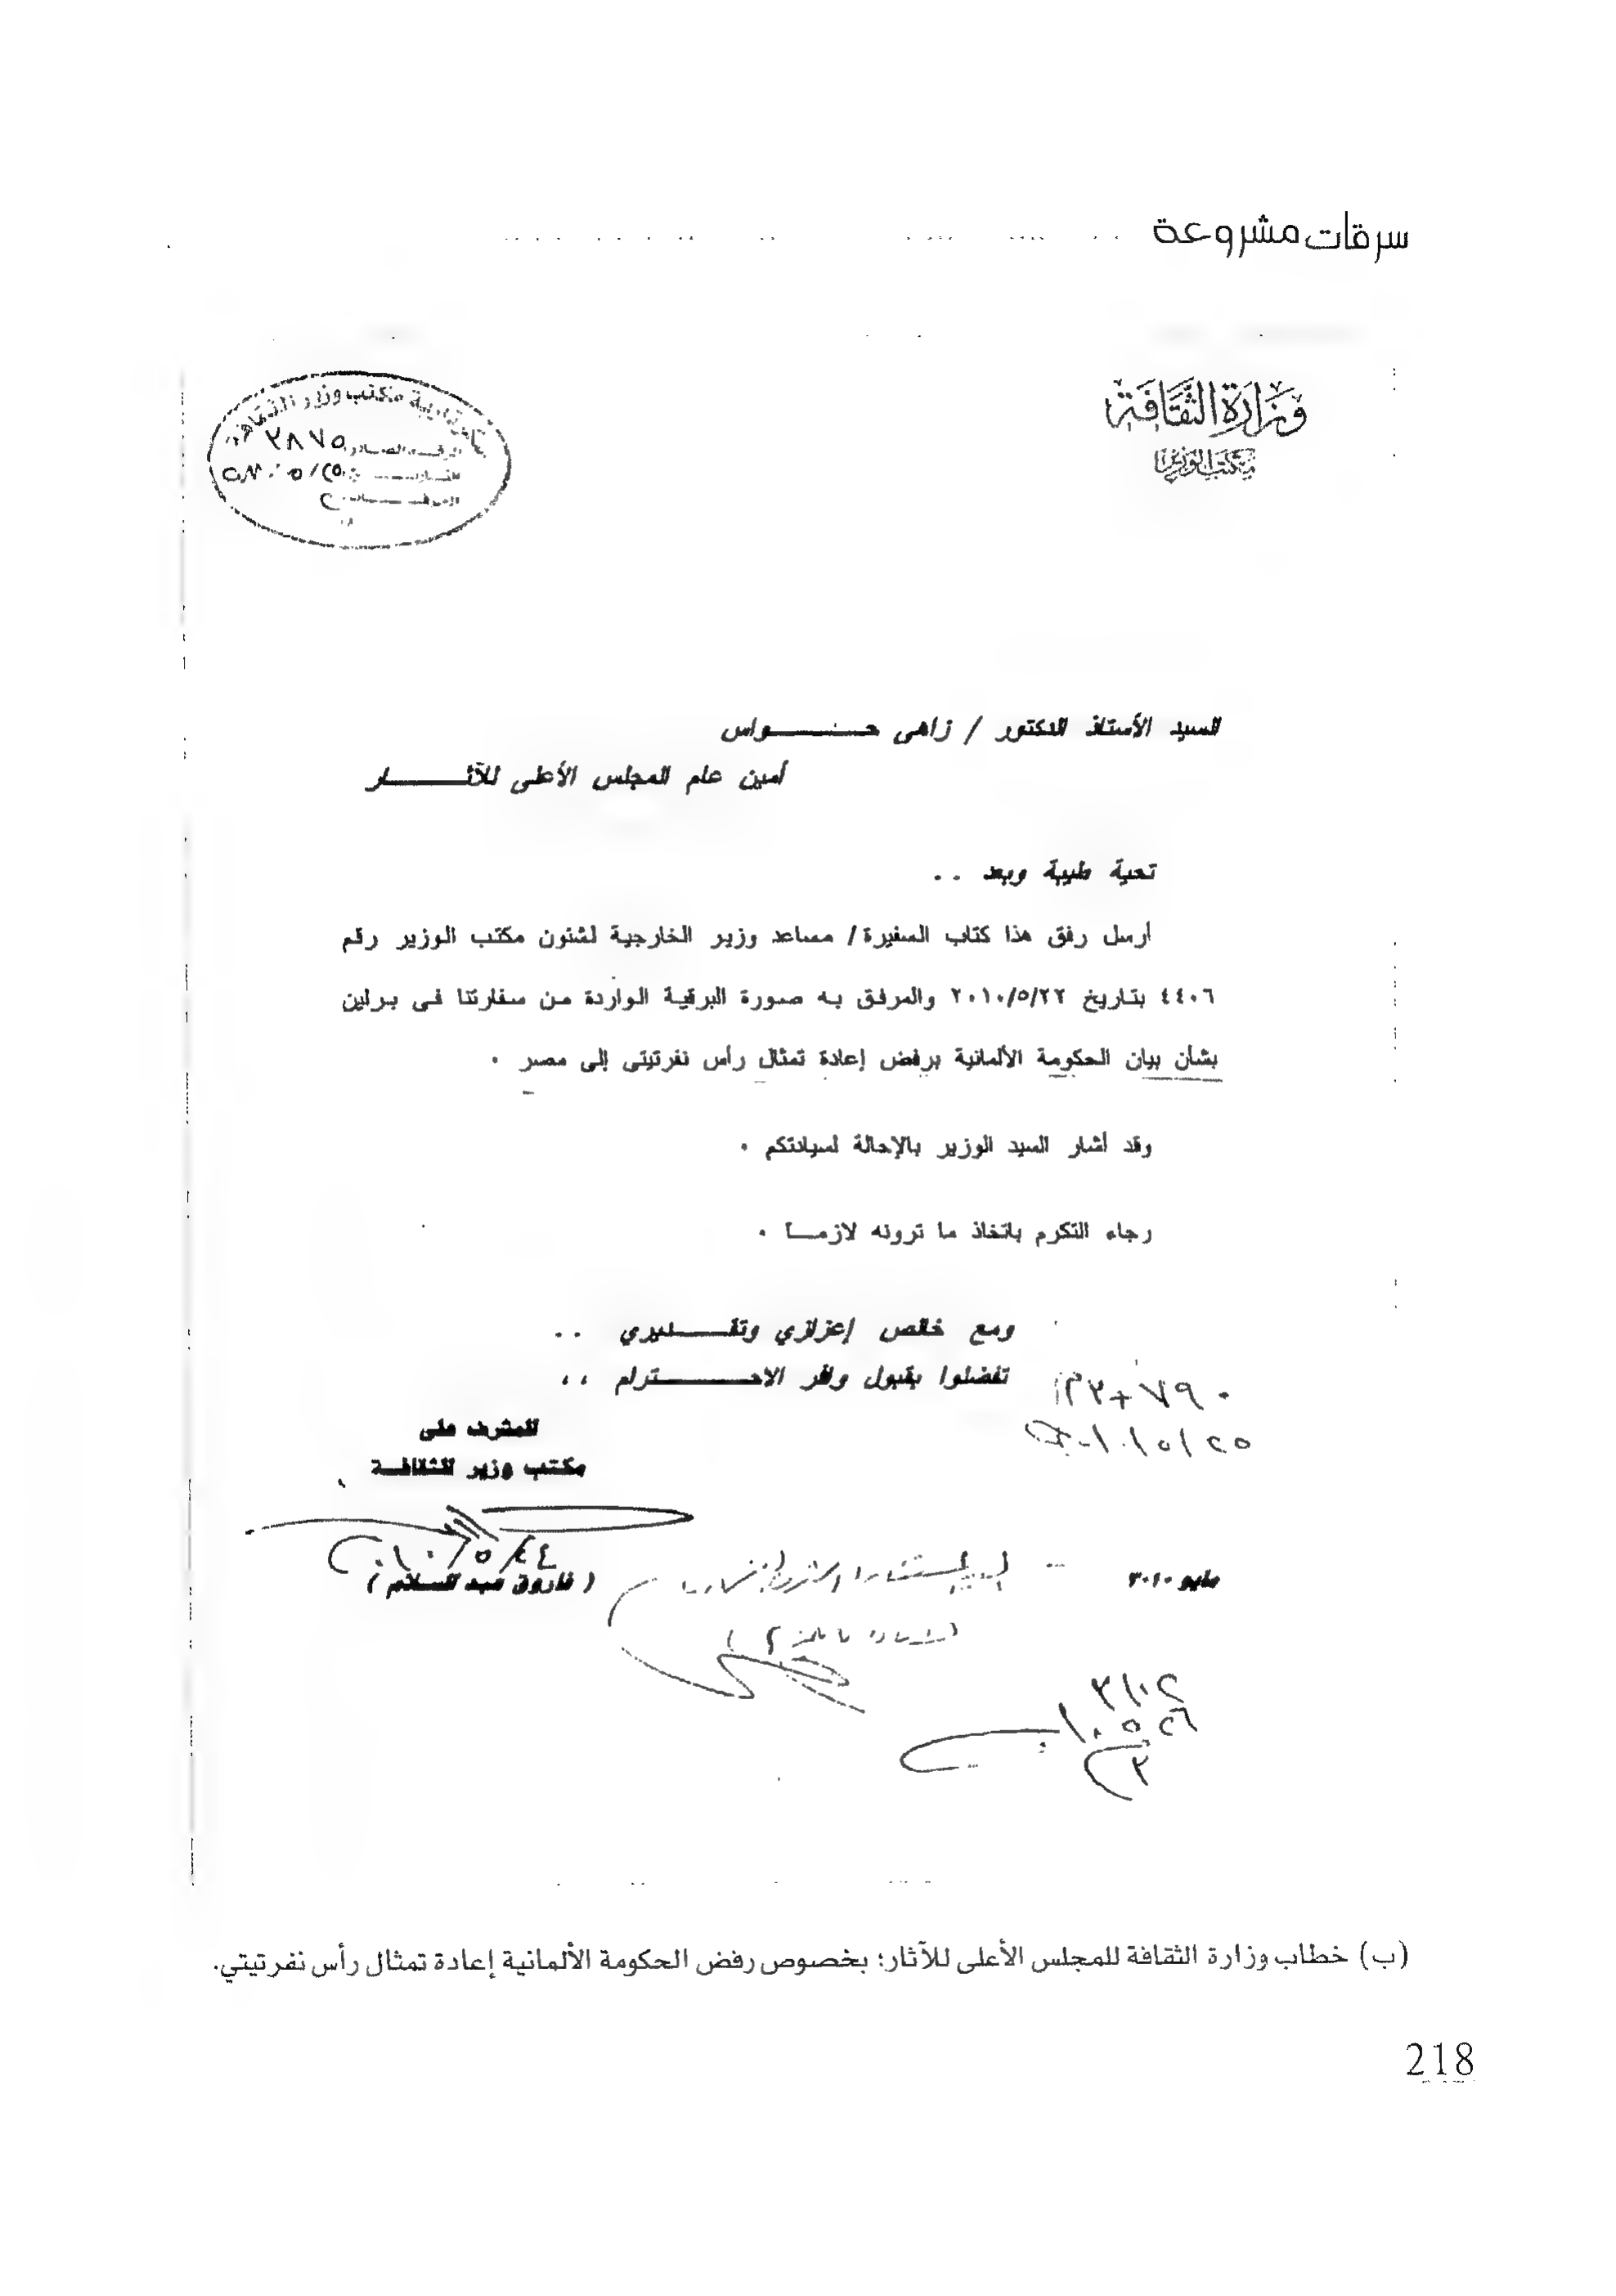 سرقات مشروعة
وزارة الثقافة
مكتب الوزير
مكتب وزير الثقافة
٢٨٧٥
السيد الأستاذ الدكتور / زاهى حـــــواس
أمين عام المجلس الأعلى للآثـــــار
تحية طيبة وبعد ..
أرسل رفق هذا كتاب السفيرة/ مساعد وزير الخارجية لشئون مكتب الوزير رقم
٤٤٠٦ بتاريخ ٢٠١٠/٥/٢٢ والمرفق به صورة البرقية الواردة من سفارتنا فى برلين
بشأن بيان الحكومة الألمانية برفض إعادة تمثال رأس نفرتيتى إلى مصر .
وقد أشار السيد الوزير بالإحالة لسيادتكم .
رجاء التكرم باتخاذ ما ترونه لازمـــا .
ومع خالص إعزازي وتقـــديري ..
تفضلوا بقبول وافر الاحـــــترام ،،
المشرف على
مكتب وزير الثقافـة
(فاروق عبد السلام)
مايو ٢٠١٠
(ب) خطاب وزارة الثقافة للمجلس الأعلى للآثار؛ بخصوص رفض الحكومة الألمانية إعادة تمثال رأس نفرتيتي.
218